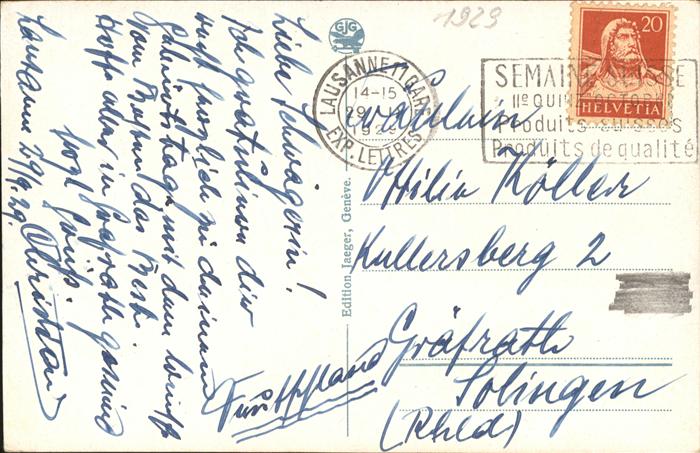 Liebe Schwägerin!
Ich gratuliere dir
recht herzlich zu deinem
Geburtstage mit dem Wunsch
vom Besten das Beste.
Hoffe alles in Gräfrath gesund
herzl. Gruß.
Lausanne 29/9.29. Christian
GJG
1929
LAUSANNE 1 (GARE)
14-15
1929
EXP. LETTRES
SEMAINE SUISSE
IIe QUINZ. OCTOBRE
Produits suisses
Produits de qualité
20
HELVETIA
Edition Jaeger, Genève.
Fräulein
Ottilie Köller
Kullersberg 2
Gräfrath
Solingen
(Rhld)
Deutschland